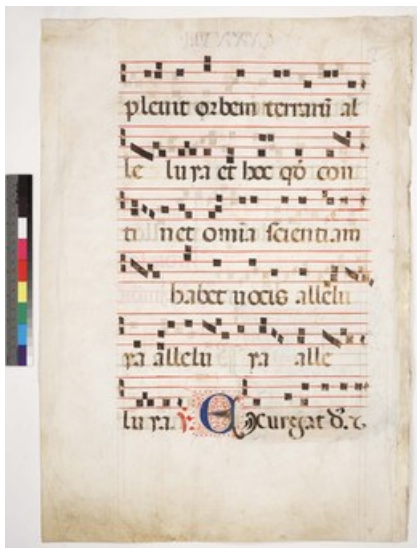 pleuit orbem terrarū al
le luya et hoc qď con
ti net omīa scientiam
habet uocis allelu
ya allelu ya alle
luya. Exurgat